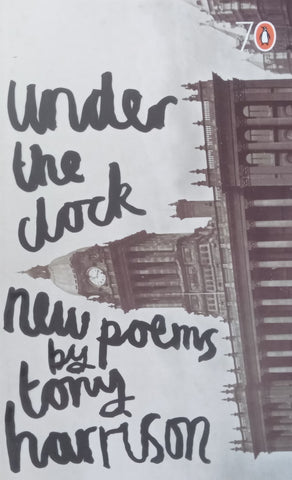 70
under
the
clock
new poems
by
tony
harrison